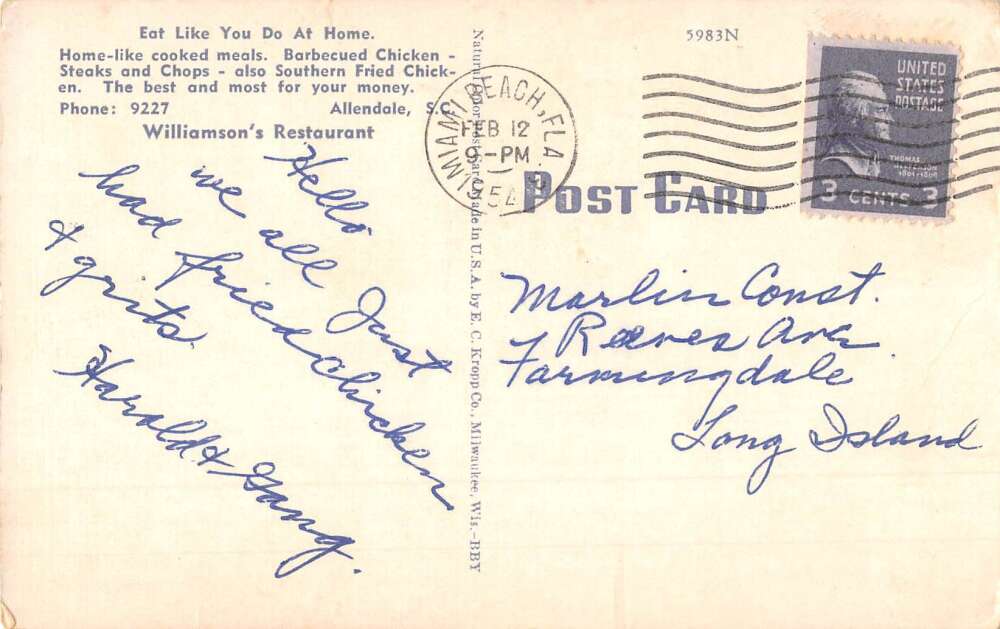 Eat Like You Do At Home.
Home-like cooked meals. Barbecued Chicken -
Steaks and Chops - also Southern Fried Chick-
en. The best and most for your money.
Phone: 9227 Allendale, S.C.
Williamson's Restaurant
Hello
we all Just
had fried Chicken
& grits.
Harold & Gang.
Made in U.S.A. by E. C. Kropp Co., Milwaukee, Wis.-BBY
5983N
MIAMI BEACH, FLA.
FEB 12
9-PM
1954
POST CARD
UNITED
STATES
POSTAGE
THOMAS JEFFERSON
1801-1809
3 CENTS 3
Marlin Const.
Reeves Ave
Farmingdale
Long Island